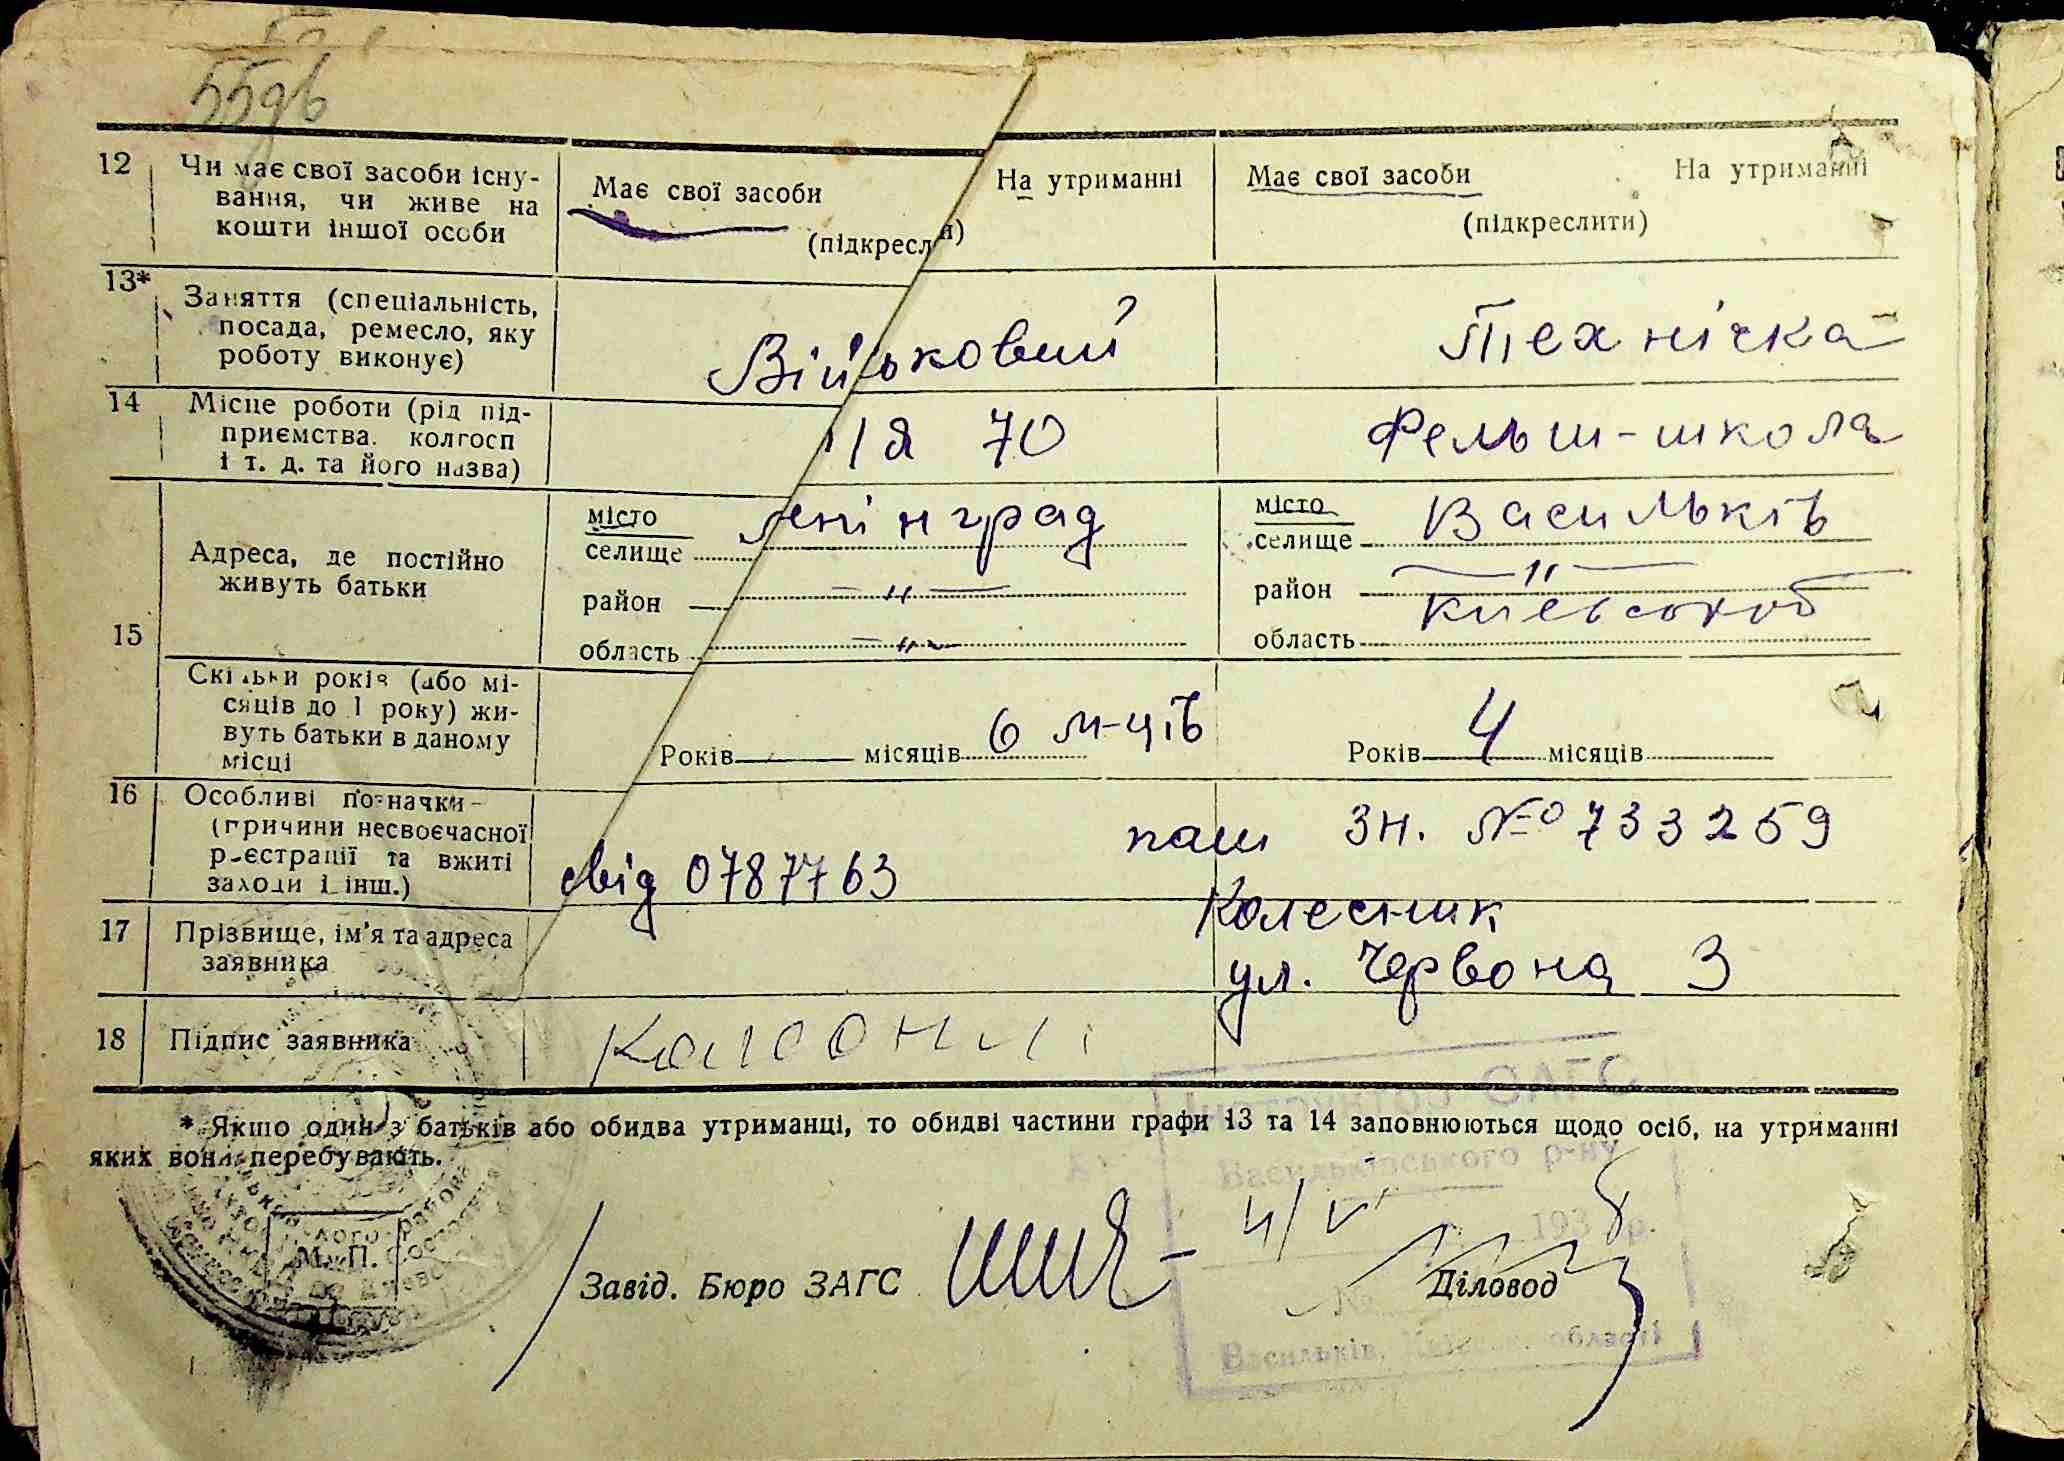 55дв
12 Чи має свої засоби існу- Має свої засоби На утриманні Має свої засоби На утриманні
вання, чи живе на
кошти іншої особи (підкресли) (підкреслити)
13* Заняття (спеціальність,
посада, ремесло, яку Військовий Технічка
роботу виконує)
14 Місце роботи (рід під-
приємства, колгосп п/я 70 Фельш-школа
і т. д. та його назва)
15 Адреса, де постійно
живуть батьки
місто Ленінград місто Васильків
селище селище
район — " — район — " —
область — " — область Київської
Скільки років (або мі-
сяців до 1 року) жи-
вуть батьки в даному
місці Років місяців 6 м-ців Років 4 місяців
16 Особливі позначки
(причини несвоєчасної паш Зн. № 733259
реєстрації та вжиті
заходи і інш.) свід 0787763
17 Прізвище, ім'я та адреса Колесник
заявника ул. Червона 3
18 Підпис заявника
* Якшо один з батьків або обидва утриманці, то обидві частини графи 13 та 14 заповнюються щодо осіб, на утриманні
яких вони перебувають.
Інструктор ЗАГС
Васильківського р-ну
4/V 1938 р.
М. П.
Завід. Бюро ЗАГС Діловод
№
Васильків, Київськ. області